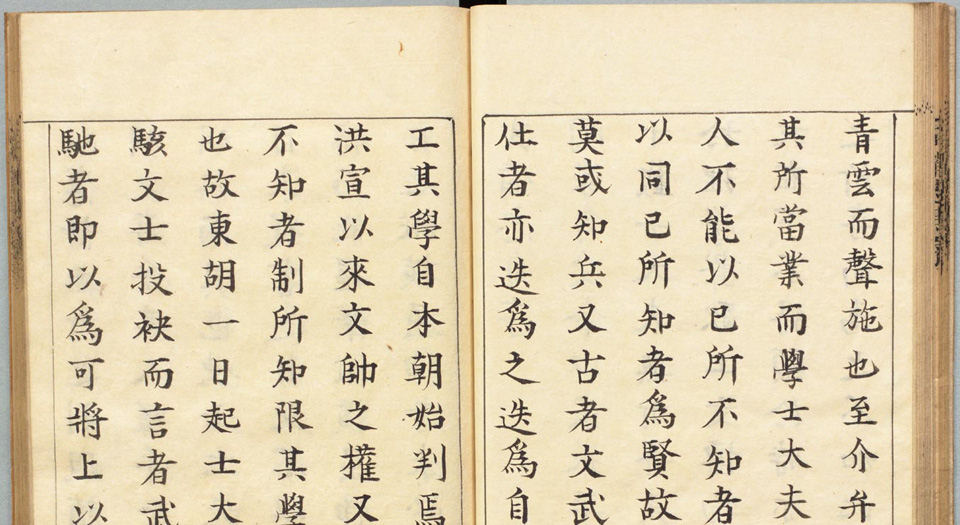 青雲而聲施也至介弁
其所當業而學士大夫
人不能以已所不知者
以同已所知者爲賢故
莫或知兵又古者文武
仕者亦迭爲之迭爲自
工其學自本朝始判焉
洪宣以來文帥之權又
不知者制所知限其學
也故東胡一日起士大
駭文士投袂而言者武
馳者即以爲可將上以